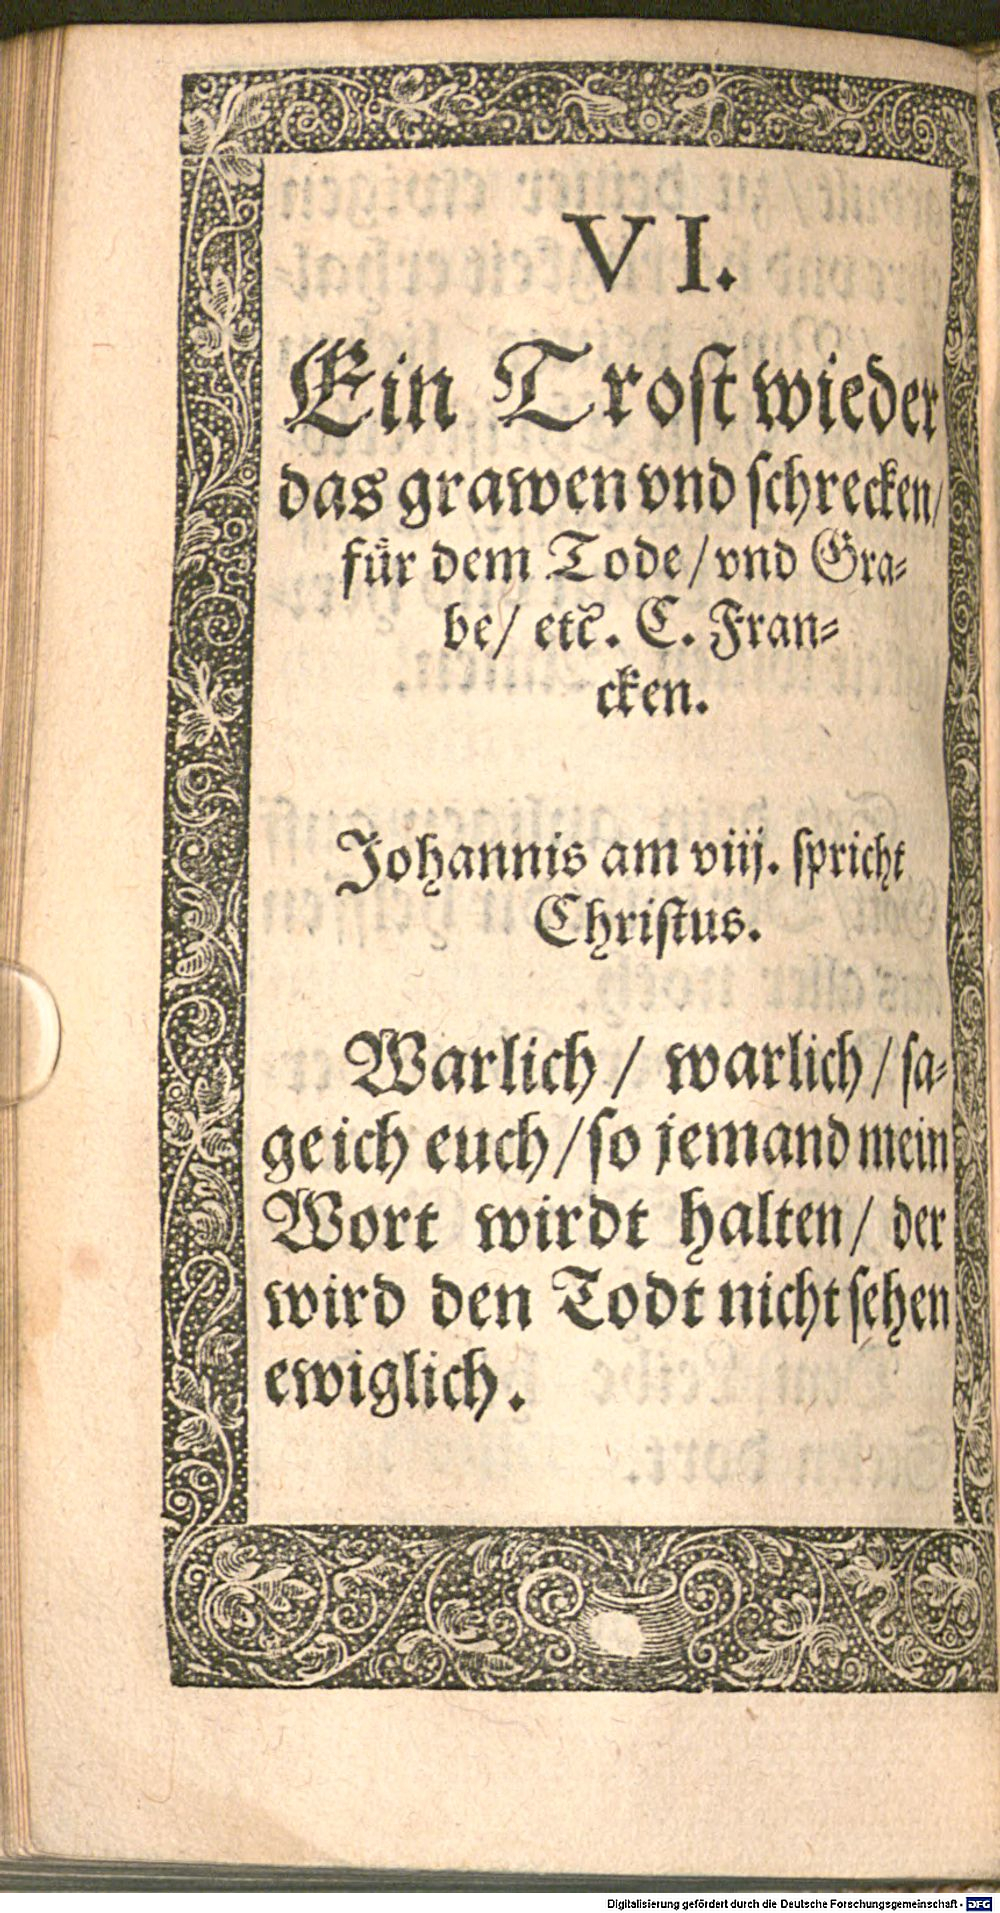 VI.
Ein Trost wieder
das grawen vnd schrecken/
fuͤr dem Tode/ vnd Gra-
be/ etc̃. C. Fran-
cken.
Johannis am viij. spricht
Christus.
Warlich/ warlich/ sa-
ge ich euch/ so jemand mein
Wort wirdt halten/ der
wird den Todt nicht sehen
ewiglich.
Digitalisierung gefördert durch die Deutsche Forschungsgemeinschaft - DFG